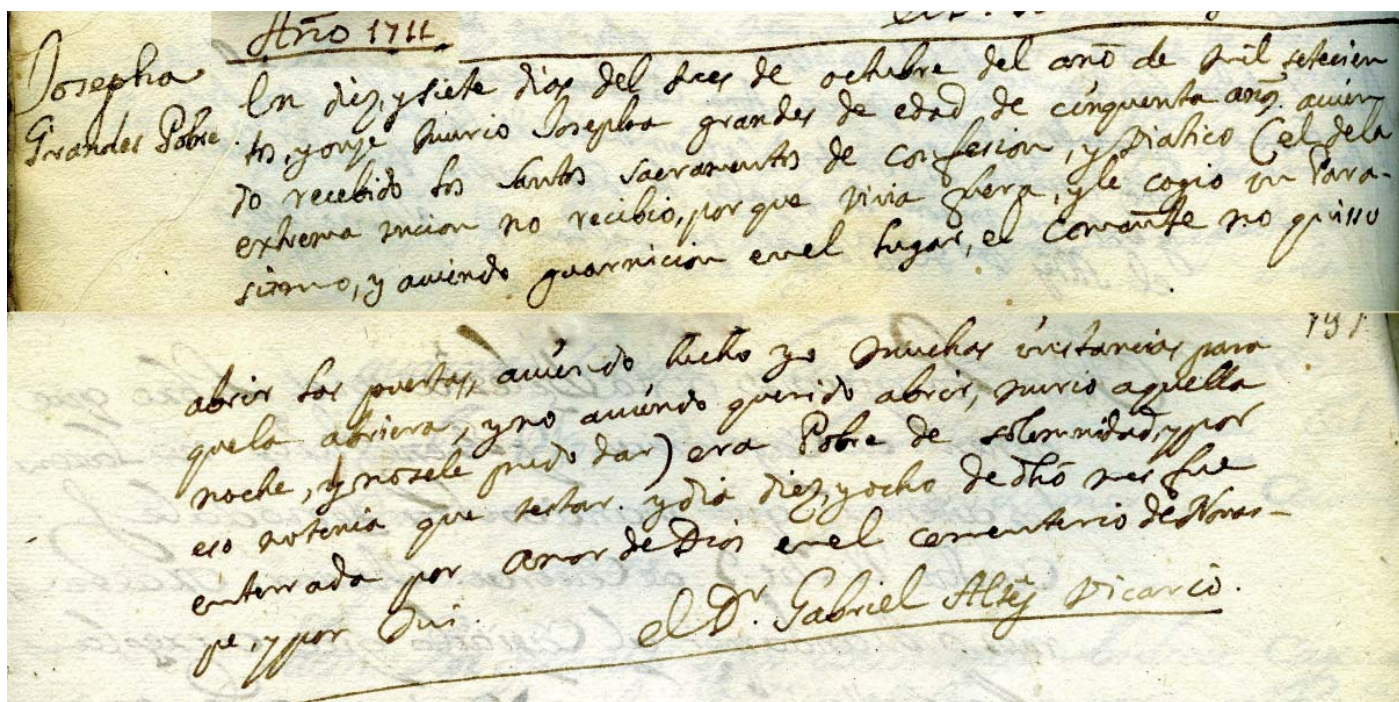 Año 1711
Josepha
Grandes Pobre
En diez, y siete dias del mes de octubre del año de mil setecien
tos, y onze murio Josepha grandes de edad de cinquenta años. auien-
do recebido los santos sacramentos de confesion, y Viatico (el dela
extrema uncion no recibio, por que viuia fuera, y le cogio un Para-
sismo, y auiendo guarnicion en el lugar, el Comante no quisso
191
abrir las puertas, auiendo hecho yo muchas instancias para
quela abriera, y no auiendo querido abrir, murio aquella
noche, y nosele pudo dar) era Pobre de solemnidad, y por
eso notenia que testar. y dia diez, y ocho de dho mes fue
enterrada por amor de Dios en el cementerio de Noras-
pe, y por
el Dr. Gabriel Vicario.